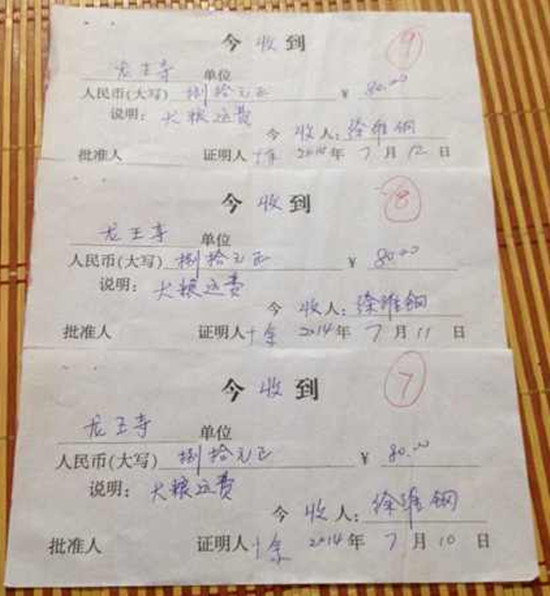 今收到
9
龙王寺 单位
人民币(大写) 捌拾元正 ¥ 80.00
说明: 犬粮运费
今 收人: 徐维钢
批准人 证明人 2014年 7月12日
今收到
8
龙王寺 单位
人民币(大写) 捌拾元正 ¥ 80.00
说明: 犬粮运费
今 收人: 徐维钢
批准人 证明人 2014年 7月11日
今收到
7
龙王寺 单位
人民币(大写) 捌拾元正 ¥ 80.00
说明: 犬粮运费
今 收人: 徐维钢
批准人 证明人 2014年 7月10日